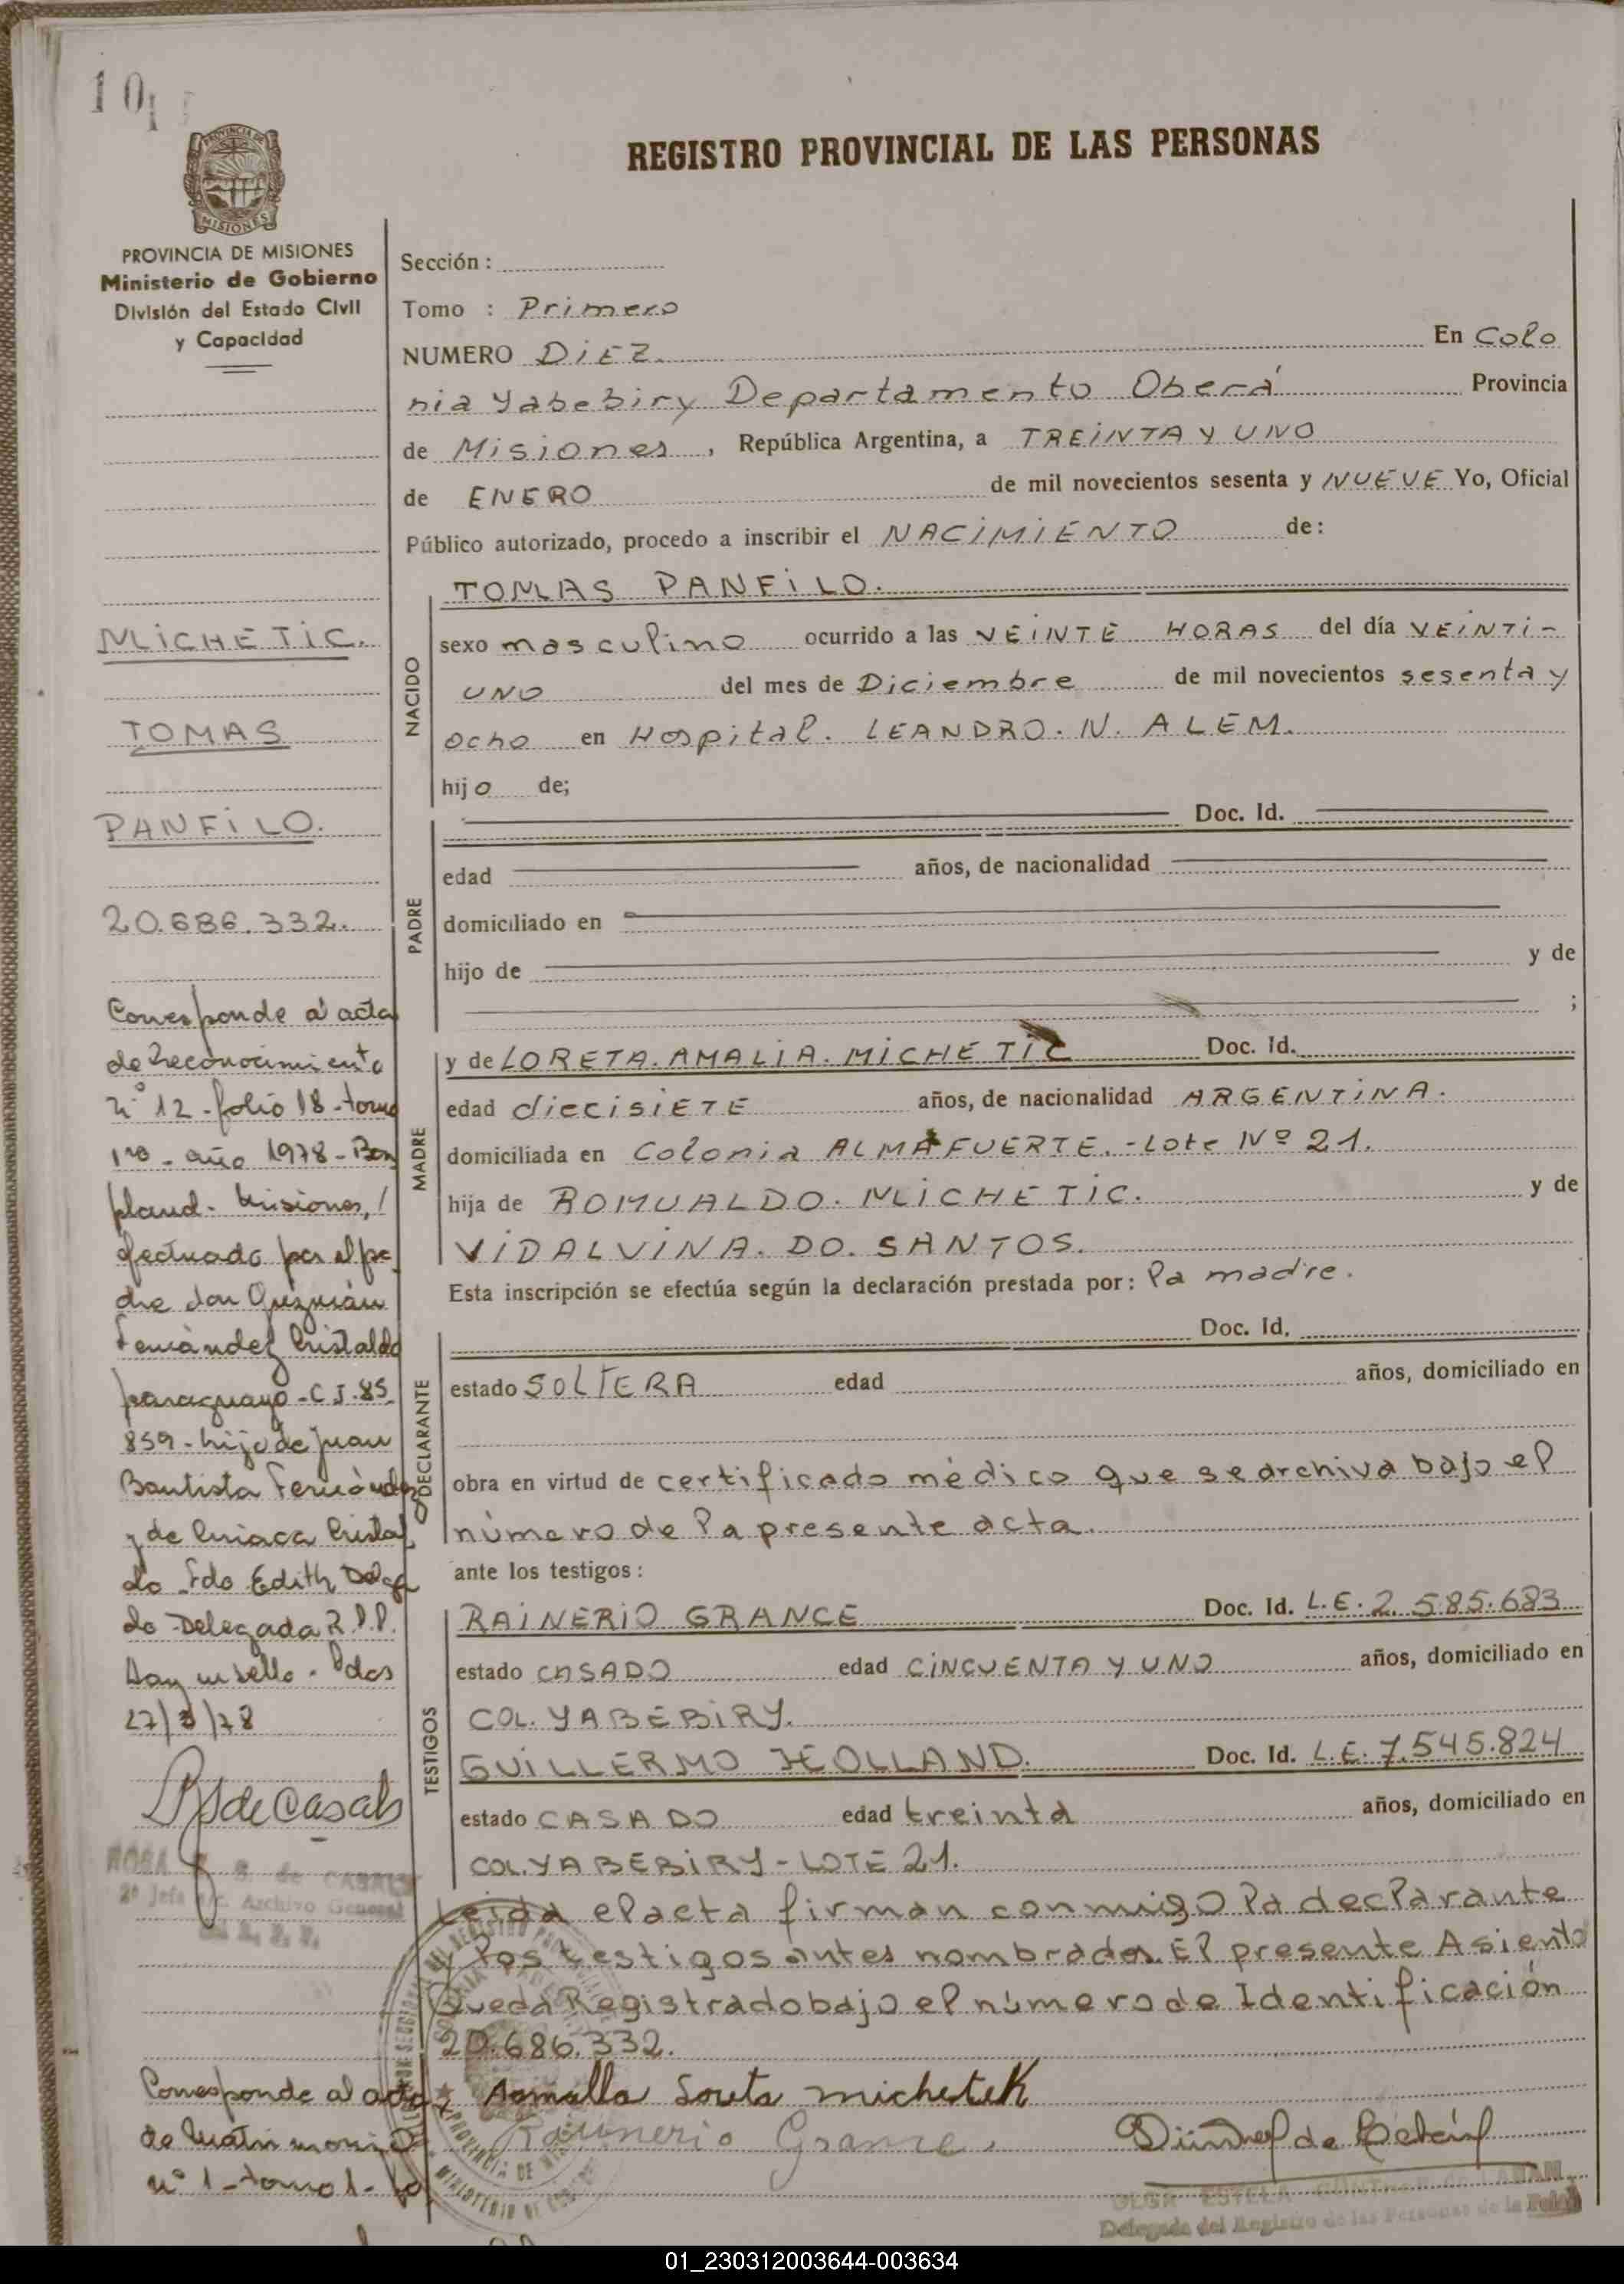 10
REGISTRO PROVINCIAL DE LAS PERSONAS
PROVINCIA DE
MISIONES
PROVINCIA DE MISIONES
Ministerio de Gobierno
División del Estado Civil
y Capacidad
MICHETIC.
TOMAS
PANFILO.
20.686.332.
Corresponde a acta
de reconocimiento
nº 12 - folio 18 - tomo
1ro - año 1978 - Bon
pland - Misiones, /
efectuado por el pa
dre don Guzmán
Fernández Cristaldo
paraguayo - C I. 85.
859 - hijo de Juan
Bautista Fernández
y de Ciriaca Crista
do Fdo Edith Delga
do - Delegada R.P.P.
Hay un sello - Pdas
27/3/78
de Casals
ROSA B. de CASALS
2ª Jefa a/c. Archivo General
Corresponde al acta
de Matrimonio
nº 1 - tomo 1 - fo
Sección :
Tomo : Primero
NUMERO DIEZ. En Colo
nia Yabebiry Departamento Oberá Provincia
de Misiones, República Argentina, a TREINTA Y UNO
de ENERO de mil novecientos sesenta y NUEVE Yo, Oficial
Público autorizado, procedo a inscribir el NACIMIENTO de:
NACIDO
TOMAS PANFILO.
sexo masculino ocurrido a las VEINTE HORAS del día VEINTI-
UNO del mes de Diciembre de mil novecientos sesenta y
ocho en Hospital. LEANDRO. N. ALEM.
hijo de;
PADRE
Doc. Id.
edad años, de nacionalidad
domiciliado en
hijo de y de
;
MADRE
y de LORETA. AMALIA. MICHETIC Doc. Id.
edad diecisiETE años, de nacionalidad ARGENTINA.
domiciliada en Colonia ALMAFUERTE. - Lote Nº 21.
hija de ROMUALDO. MICHETIC. y de
VIDALVINA. DO. SANTOS.
Esta inscripción se efectúa según la declaración prestada por: la madre.
DECLARANTE
Doc. Id.
estado SOLTERA edad años, domiciliado en
obra en virtud de certificado médico que se archiva bajo el
número de la presente acta.
ante los testigos :
TESTIGOS
RAINERIO GRANCE Doc. Id. L.E. 2.585.683
estado CASADO edad CINCUENTA Y UNO años, domiciliado en
COL. YABEBIRY.
GUILLERMO HOLLAND. Doc. Id. L.E. 7.545.824
estado CASADO edad treinta años, domiciliado en
COL. YABEBIRY - LOTE 21.
Leida el acta firman conmigo la declarante
y los testigos antes nombrados. El presente Asiento
queda Registrado bajo el número de Identificación
20.686.332.
Amalla Loreta michetek
Rainerio Grance.
OLGA ESTELA
Delegada del Registro de las Personas de la
01_230312003644-003634